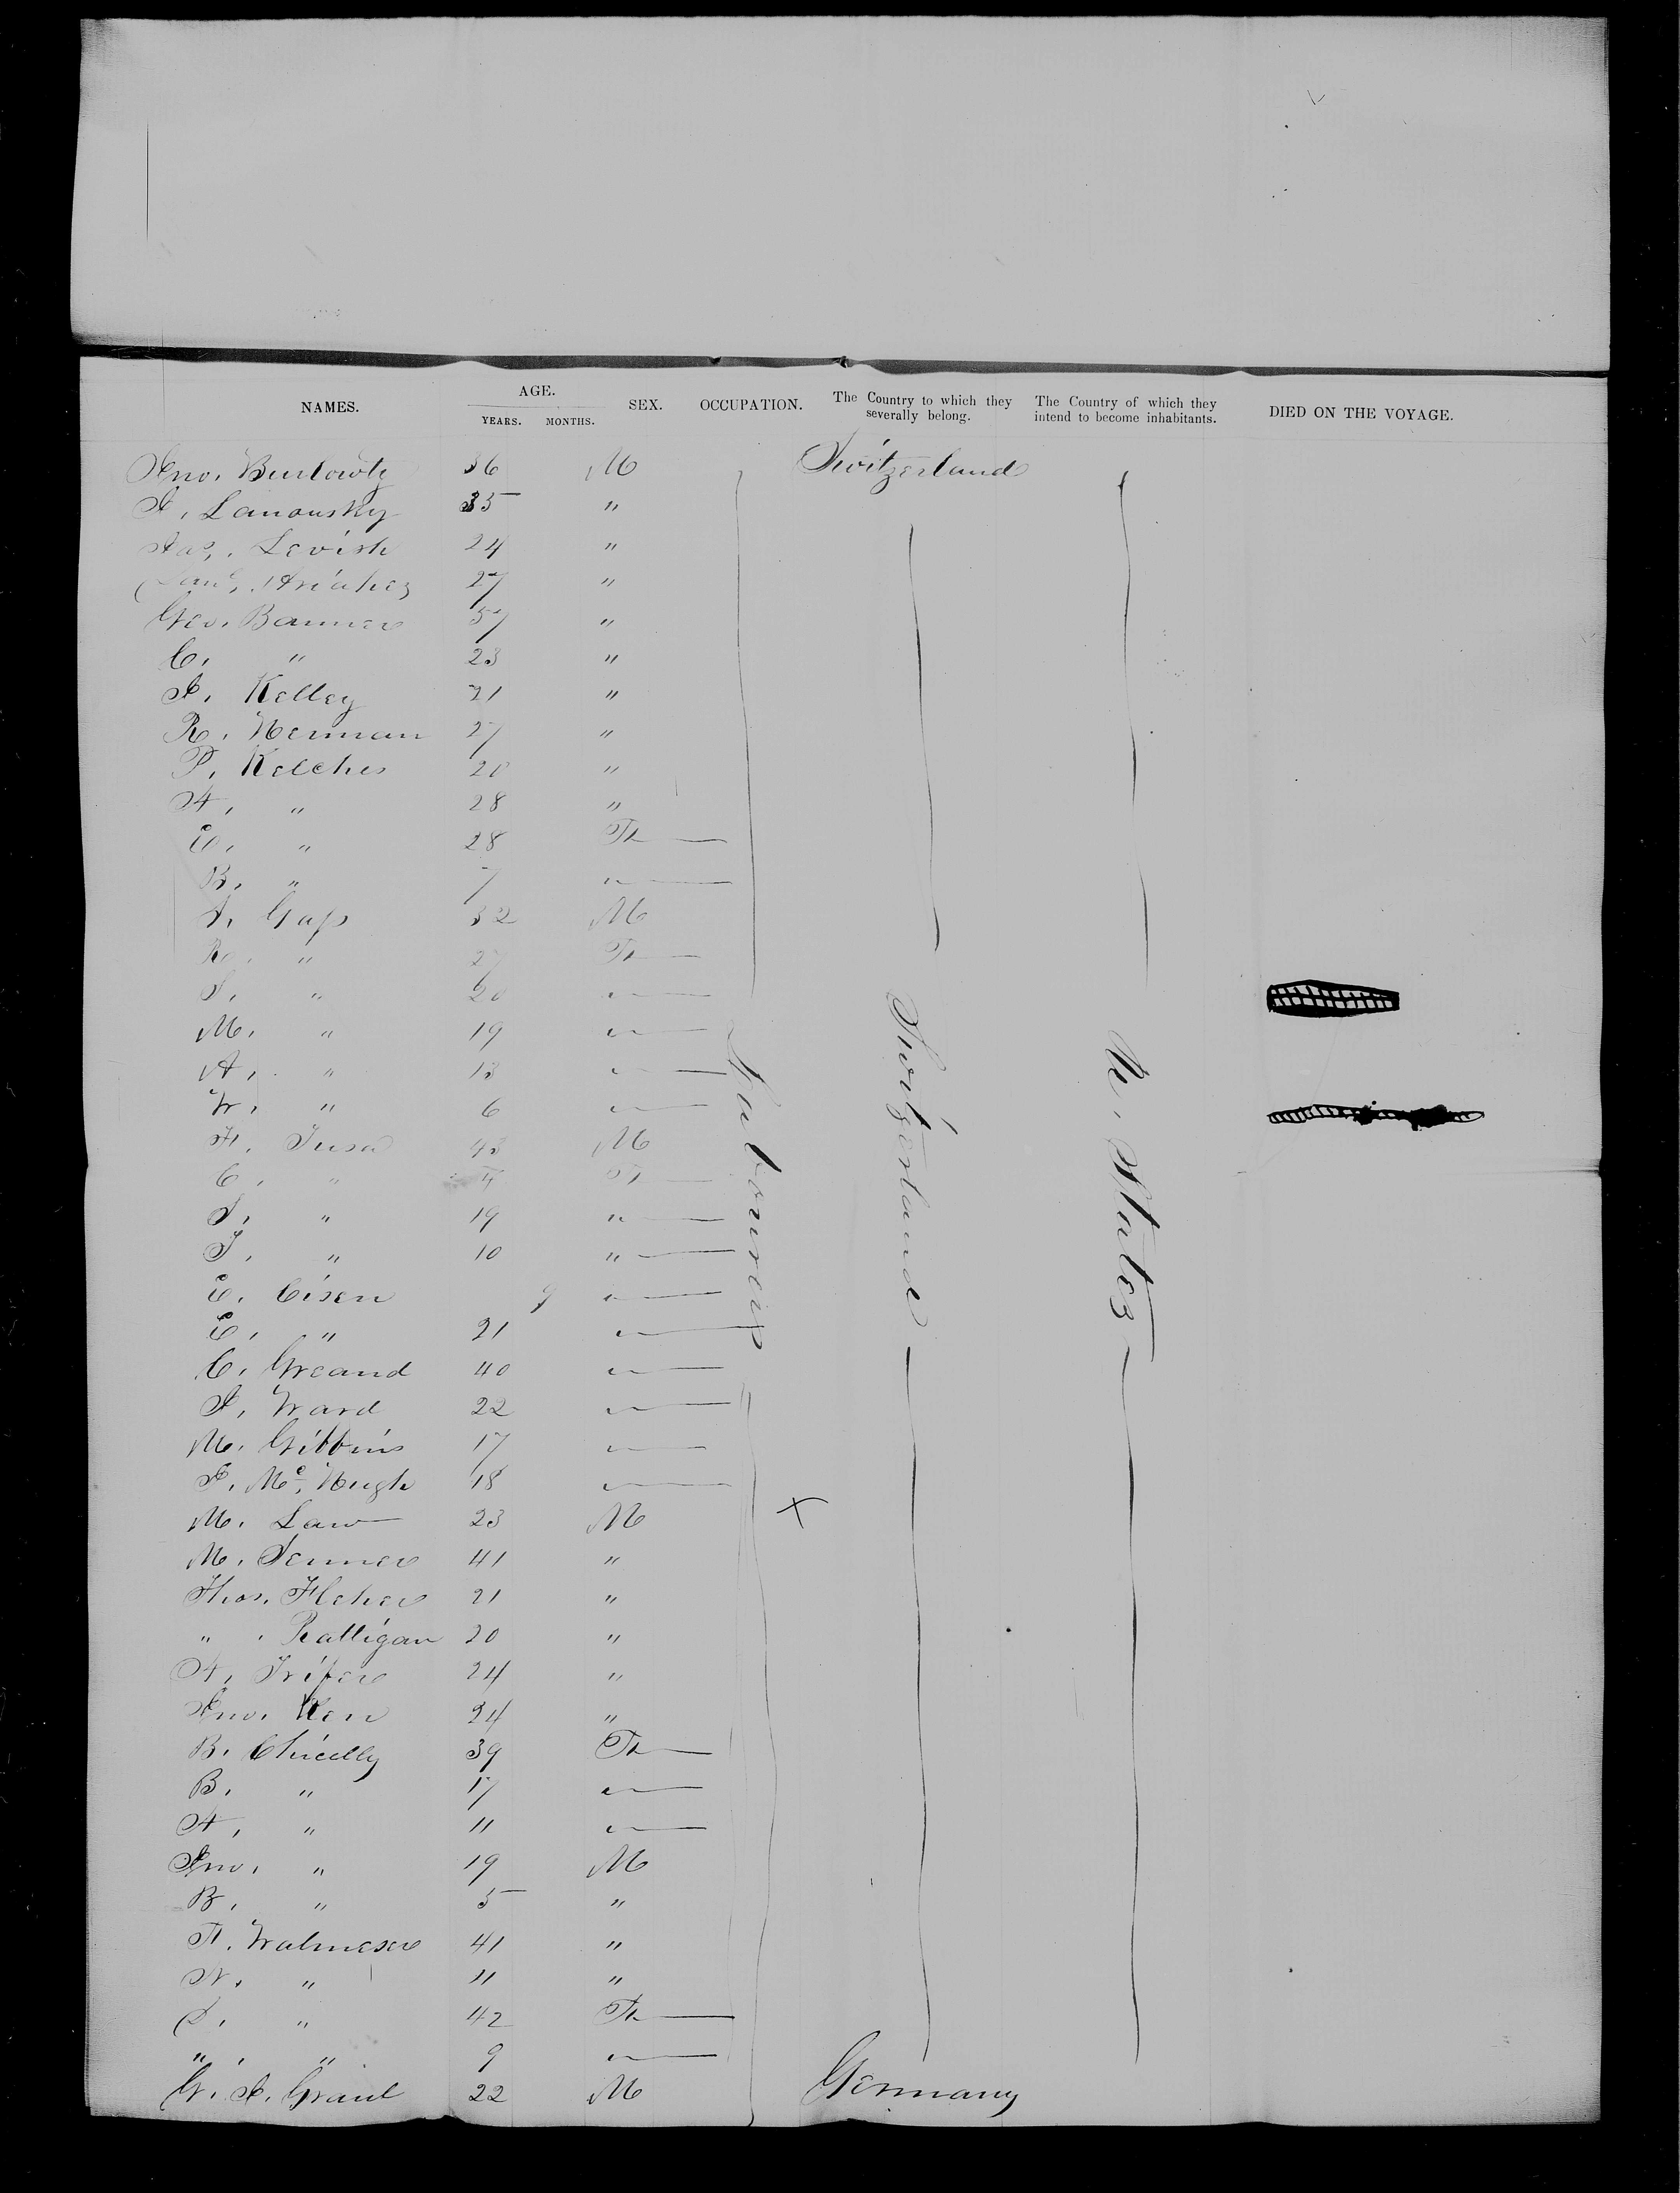 NAMES. AGE. YEARS. MONTHS. SEX. OCCUPATION. The Country to which they severally belong. The Country of which they intend to become inhabitants. DIED ON THE VOYAGE.
Jno. Burlowtz 36 M Switzerland
J. Lanousky 35 "
Jas. Levish 24 "
27 "
Geo. Banner 57 "
C. " 23 "
J. Kelley 21 "
R. Herman 27 "
P. Kelcher 20 "
A. " 28 "
E. " 28 F
B. " 7 "
J. Gass 32 M
R. " 27 F
S. " 20 "
M. " 19 "
A. " 13 "
W. " 6 "
F. Jusa 43 M
C. " F
S. " 19 "
J. " 10 "
E. Eisen 9 "
E. " 21 "
C. Greand 40 "
J. Ward 22 "
M. Gibbins 17 "
J. Mc. Hugh 18 "
M. Law 23 M
M. Senner 41 "
Thos. Fleher 21 "
" . Rattigan 20 "
A. 24 "
Jno. Ken 24 "
B. Chicelly 39 F
B. " 17 "
A. " 11 "
Jno. " 19 M
B. " 5 "
F. Walmeser 41 "
N. " 11 "
S. " 42 F
" . " 9 "
G. J. Graul 22 M Germany
Labourers
Switzerland
U. States
X